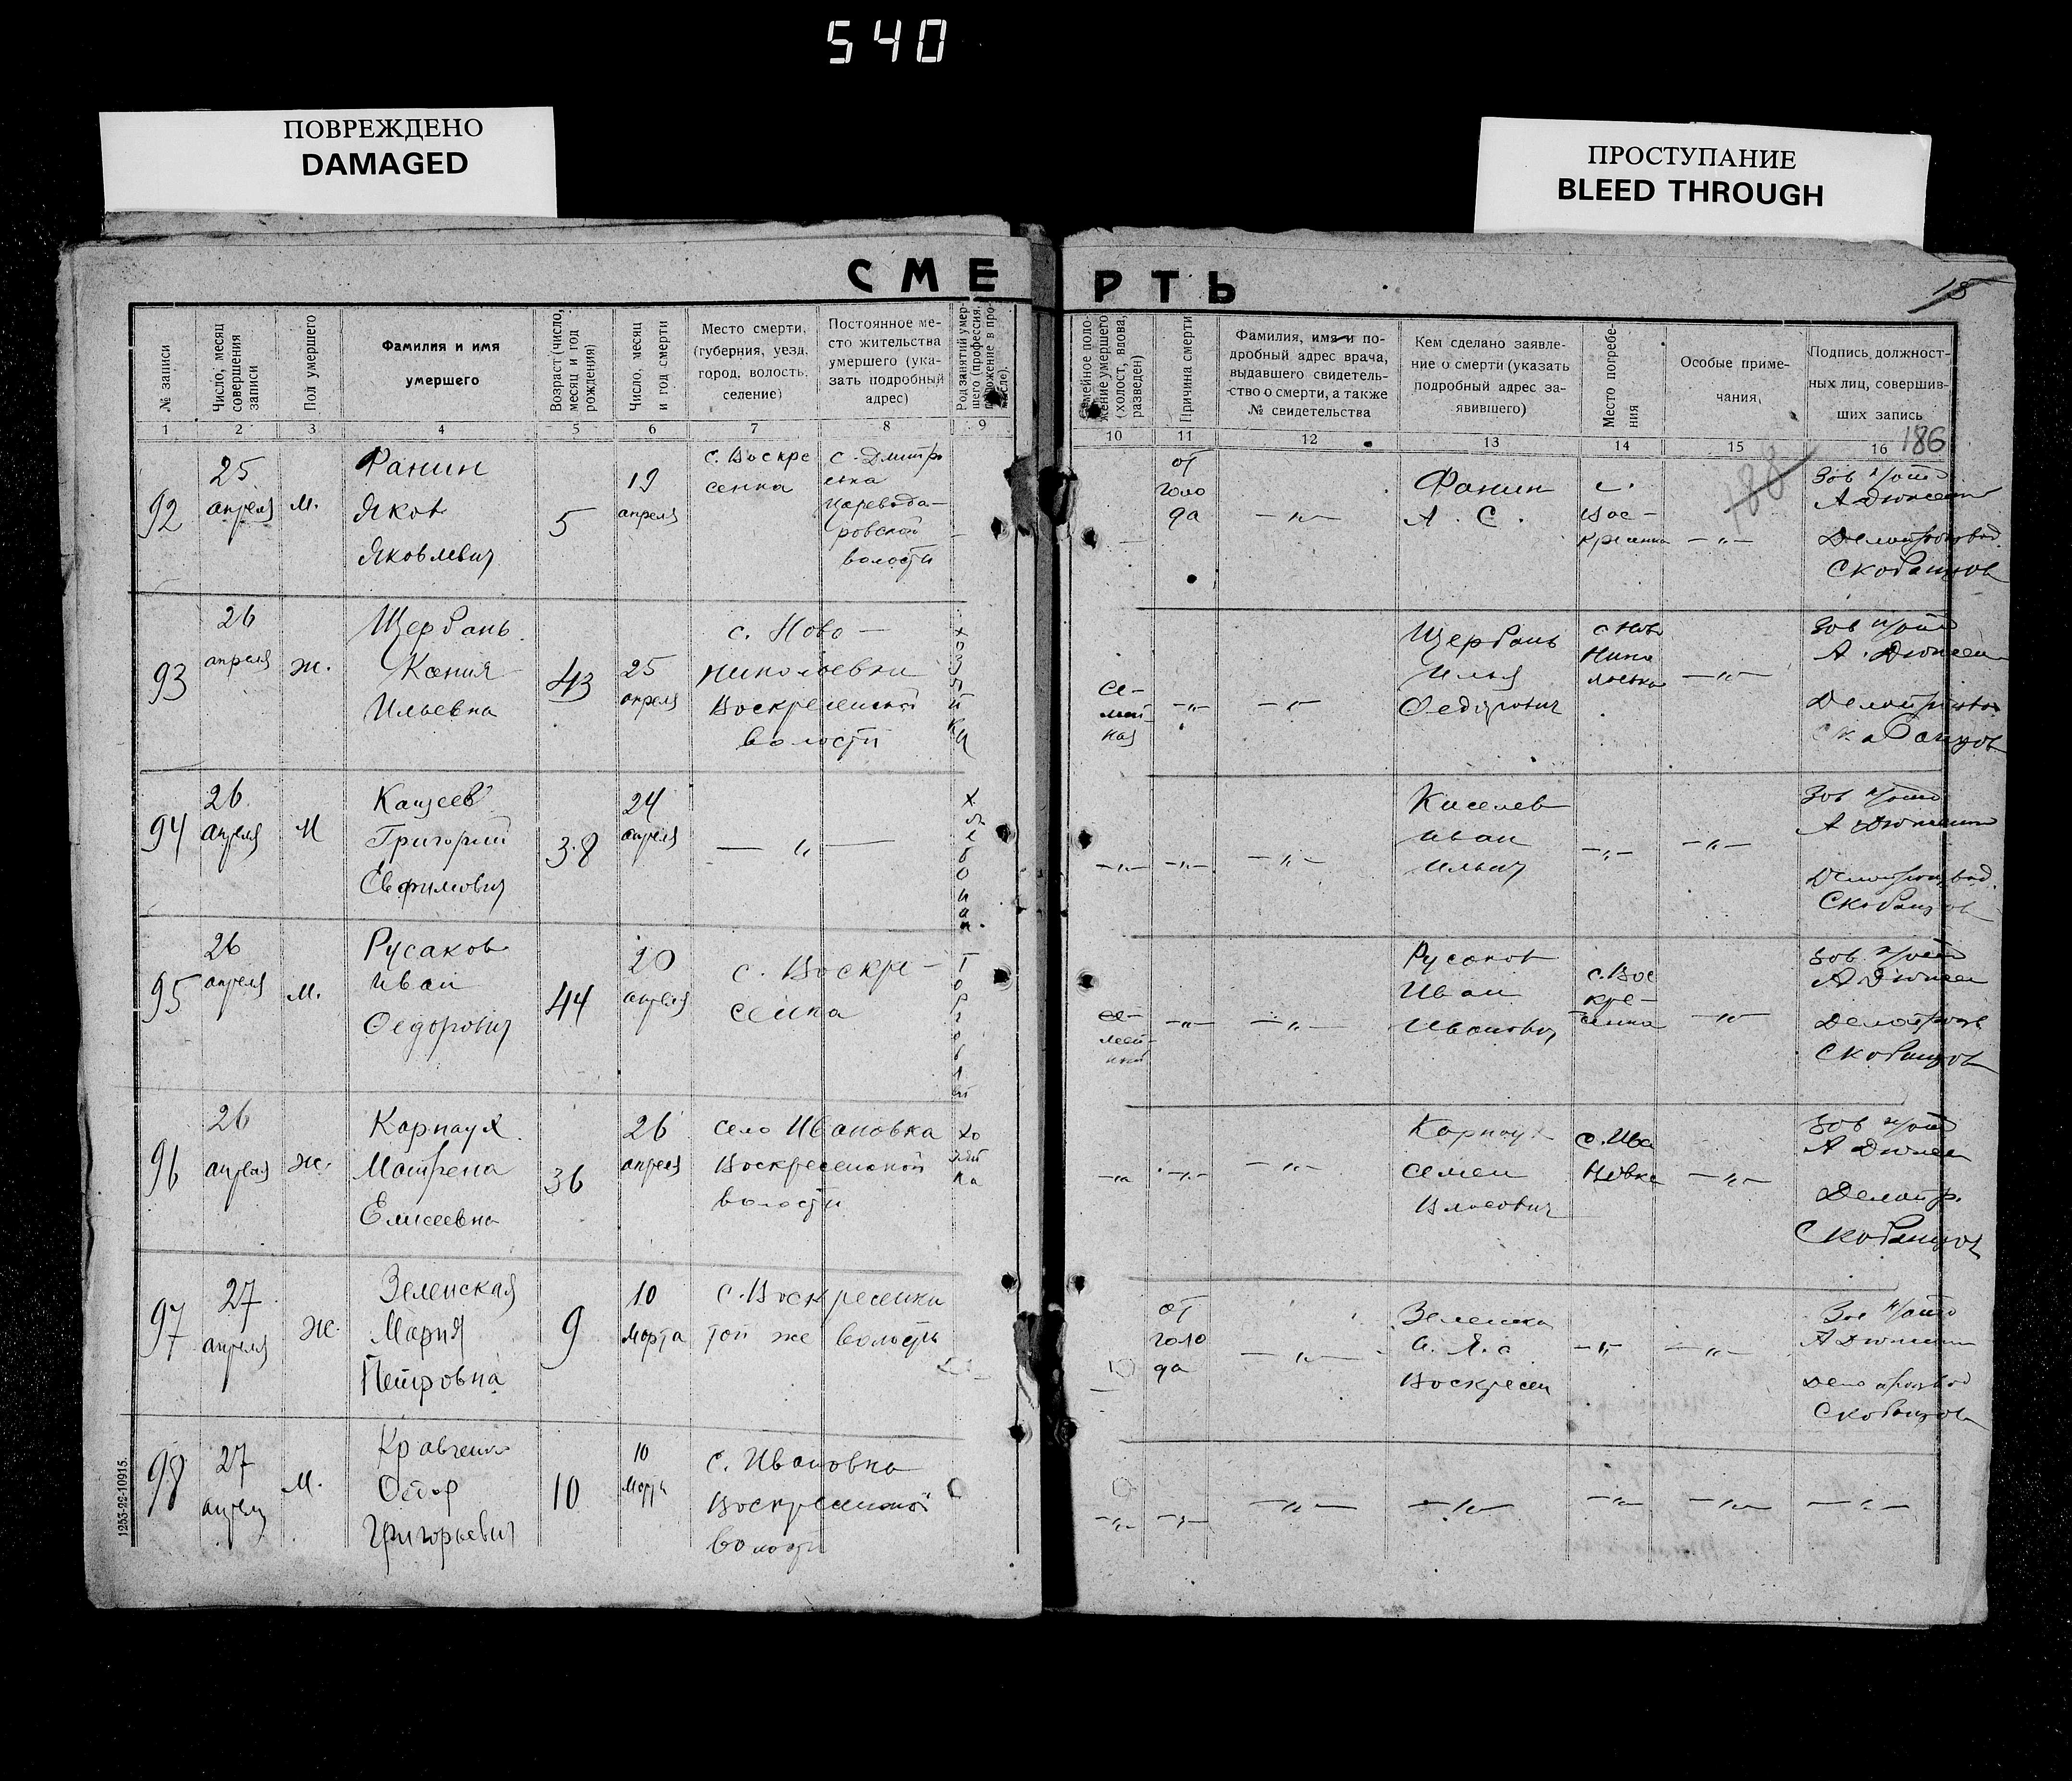 540
ПОВРЕЖДЕНО
DAMAGED
ПРОСТУПАНИЕ
BLEED THROUGH
СМЕРТЬ
18
№ записи
Число, месяц
совершения
записи
Пол умершего
Фамилия и имя
умершего
Возраст (число,
месяц и год
рождения)
Число, месяц
и год смерти
Место смерти,
(губерния, уезд,
город, волость,
селение)
Постоянное ме-
сто жительства
умершего (ука-
зать подробный
адрес)
Род занятий умер-
шего (профессия,
положение в про-
мысле).
Семейное поло-
жение умершего
(холост, вдова,
разведен)
Причина смерти
Фамилия, имя и по-
дробный адрес врача,
выдавшего свидетель-
ство о смерти, а также
№ свидетельства
Кем сделано заявле-
ние о смерти (указать
подробный адрес за-
явившего)
Место погребе-
ния
Особые приме-
чания,
Подпись должност-
ных лиц, совершив-
ших запись
1 2 3 4 5 6 7 8 9 10 11 12 13 14 15 16
186
188
92
25
апреля
м.
Фанин
Яков
Яковлевич
5
19
апреля
с. Воскре
сенка
с. Дмитро
вка
Царевода-
ровской
волости
от
голо
да
—"—
Фанин
А. С.
с.
Вос-
кресенка
—"—
Зав
Делопроизвод.
Скобанцов
93
26
апреля
ж.
Щербань
Ксения
Ильевна
43
25
апреля
с. Ново-
николаевки
Воскресенской
волости
хозяйка
се-
мей-
ная
—"—
—"—
Щербань
Илья
Федорович
с Ново
Нико
лаевка
—"—
Зав
Скобанцов
94
26
апреля
М
Кащеев
Григорий
Евфимович
38
24
апреля
—"—
хлебопаш.
—"—
—"—
—"—
Киселев
Иван
Ильич
—"—
—"—
Зав
Делопроизвод.
Скобанцов
95
26
апреля
м.
Русаков
Иван
Федорович
44
20
апреля
с. Воскре-
сенка
се-
мей-
ный
—"—
—"—
Русаков
Иван
Иванович
с. Вос
кре-
сенка
—"—
Зав
Делопроизв
Скобанцов
96
26
апреля
ж.
Карнаух
Матрена
Елисеевна
36
26
апреля
село Ивановка
Воскресенской
волости
хо
зяй
ка
—"—
—"—
—"—
Карнаух
Семен
Власович
с. Ива
новка
—"—
Зав
Делопр.
Скобанцов
97
27
апреля
ж.
Зеленская
Мария
Петровна
9
10
Марта
с. Воскресенки
той же волости
от
голо
да
—"—
Воскресен
—"—
—"—
Зав
Делопроизвод
Скобанцов
98
27
апреля
м.
Кравченко
Григорьевич
10
10
Марта
с. Ивановка
Воскресенской
волости
—"—
—"—
—"—
—"—
—"—
—"—
—"—
1253-22-10915.